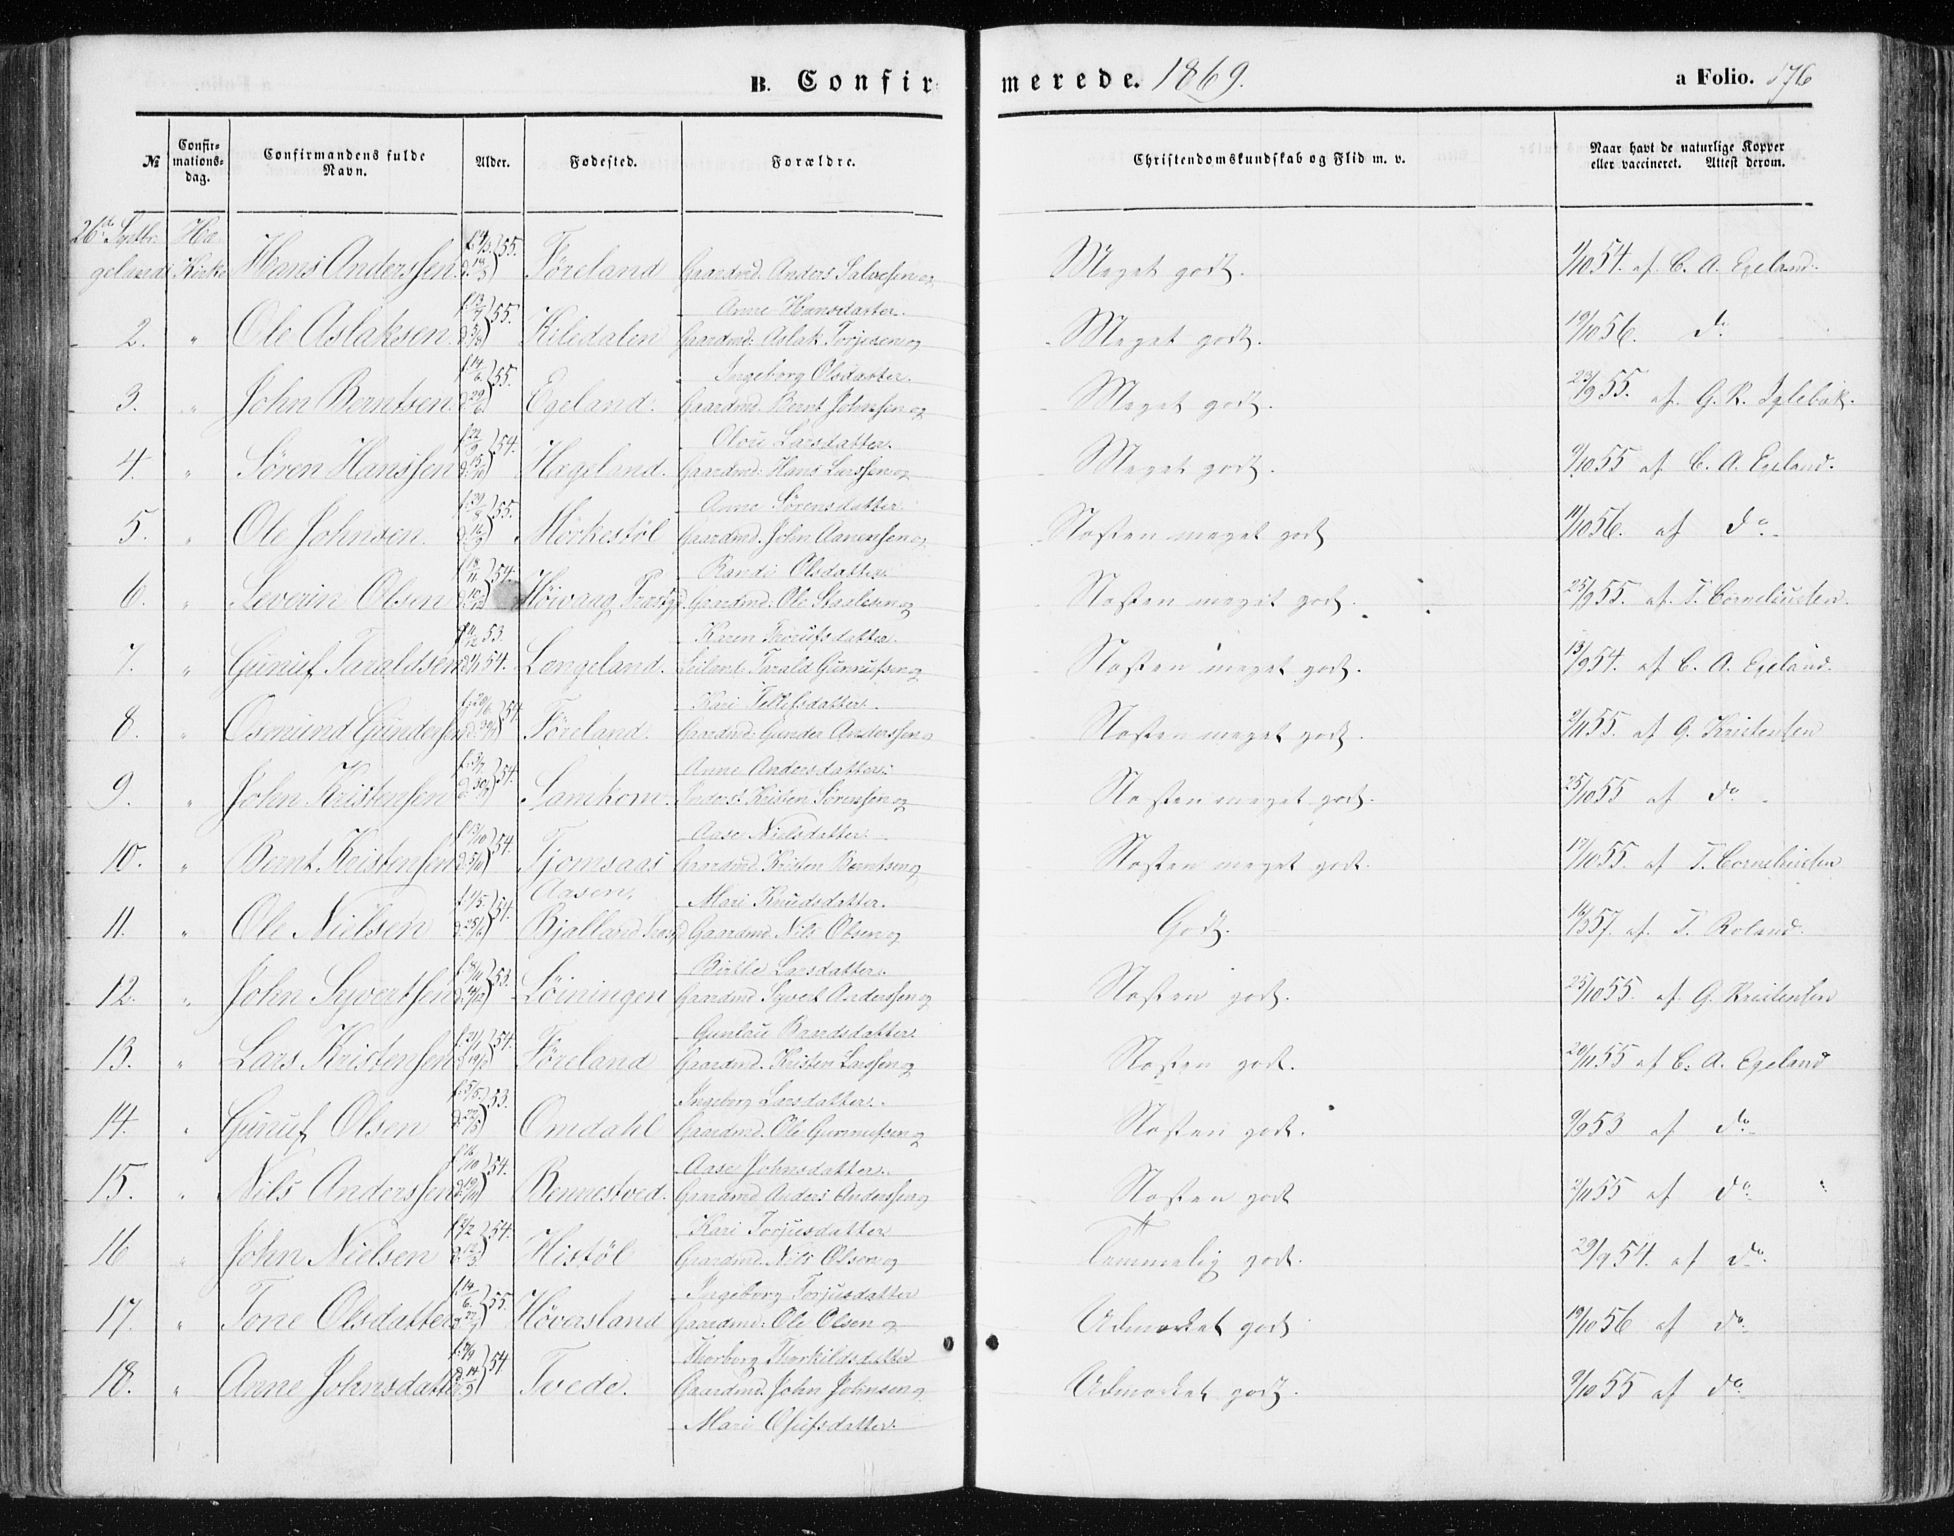 B. Confirmerede. 1869.
a Folio. 176
№ Confirmationsdag. Confirmandens fulde Navn. Alder. Fødested. Forældre. Christendomskundskab og Flid m. v. Naar havt de naturlige Kopper eller vaccineret. Attest derom.
26de Septbr: Hægelands Kirke
Hans Anderssen 55. Föreland Gaardmd. Anders Salvesen og Meget godt. 54. af C. A. Egeland.
Anne Hansdatter.
2. " Ole Aslaksen. 55. Kiledalen Gaardmd: Aslak Torjusen og Meget godt. 19/10 56. do
Ingeborg Olsdatter.
3. " John Berntsen 55. Egeland. Gaardmd. Bernt Johnsen og Meget godt. 23/9 55. af G. K. Iglebæk.
Olou Larsdatter.
4. " Sören Hanssen 54. Hægeland. Gaardmd: Hans Larssen og Meget godt. 9/10 55 af C. A. Egeland.
Anne Sörensdatter
5. " Ole Johnsen. 55. Mörkestöl Gaardmd. John Aanensen og Næsten meget godt 56. af do
Randi Olsdatter
6. " Severin Olsen 54. Höivaag Præstgd Gaardmd. Ole Staalesen og Næsten meget godt. 25/9 55. af T. Corneliusen.
Karen datter.
7. " Gunuf Taraldsen 53. 54. Langeland. Leilend. Tarald Gunnufsen og Næsten meget godt. 13/9 54. af C. A. Egeland.
Kari Tellefsdatter.
8. " Osmund Gundersen 54 Föreland. Gaardmd: Gunder Anderssen og Næsten meget godt. 55. af G. Kristensen
Anne Andersdatter:
9. " John Kristensen 54. Samkom. Inderst Kristen Sörensen og Næsten meget godt. 25/10 55 af do
Aase Nielsdatter.
10. " Bernt Kristensen 54. Tjomsaas Gaardmd Kristen Berntsen og Næsten meget godt. 17/10 55 af T. Corneliusen
Aasen, Mari Knudsdatter.
11. " Ole Nielsen 54. Bjelland Præstgd Gaardmd. Nils Olsen og Godt. 57. af T. Roland.
Birthe Larsdatter.
12. " John Syvertsen 53. Löiningen Gaardmd Syvert Anderssen og Næsten godt. 25/10 55. af G. Kristensen
Gunlau Baardsdatter
13. " Lars Kristensen 54. Föreland Gaardmd. Kristen Larssen og Næsten godt. 20/11 55 af C. A. Egeland
Ingeborg Larsdatter.
14. " Gunuf Olsen 53. Omdahl Gaardmd. Ole Gunnufsen og Næsten godt. 53 af do
Aase Johnsdatter.
15. " Nils Anderssen 54. Bennestved. Gaardmd Anders Anderssen og Næsten godt 55 af do
Kari Torjusdatter
16 " John Nielsen 54. Histöl Gaardmd. Nils Olsen og Temmelig godt. 29/9 54. af do
Ingeborg Torjusdatter
17. " Tone Olsdatter 55. Höversland Gaardmd: Ole Olsen og Udmærket godt 19/10 56 af do
Thorborg Thorkildsdatter
18. " Anne Johnsdatter 54 Tvede. Gaardmd. John Johnsen og Udmærket godt. 9/10 55 af do
Mari Osufsdatter.